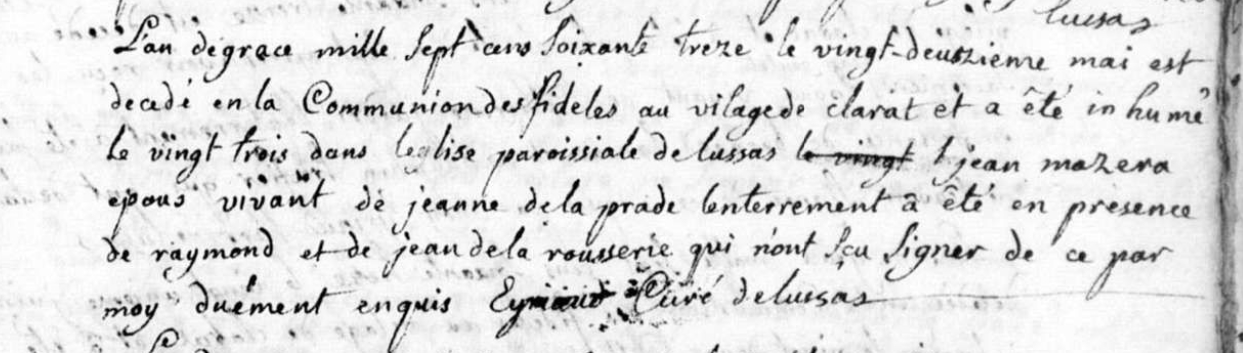 lussas
L'an de grace mille sept cens soixante treze le vingt-deuszieme mai est
decedé en la Communion des fideles au vilage de clarat et a été inhumé
le vingt trois dans leglise paroissiale de lussas le vingt jean mazera
epous vivant de jeanne dela prade lenterrement a été en presence
de raymond et de jean dela rousserie qui n'ont sçu signer de ce par
moy duëment enquis Curé de lussas